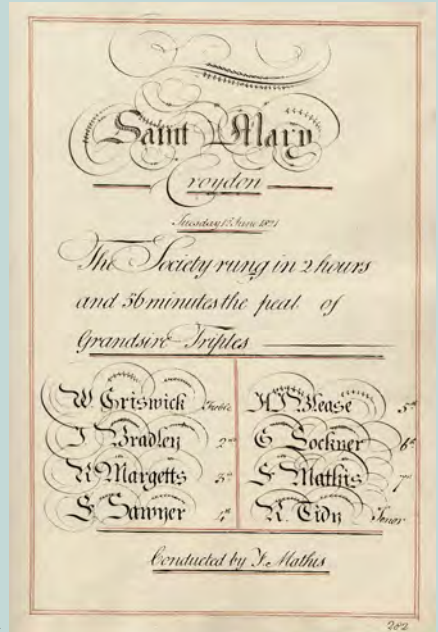 Saint Mary
Croydon
Tuesday June 1891
The Society rung in 2 hours
and 56 minutes the peal of
Grandsire Triples
W. Griswick Treble
J. Bradley 2nd
R. Margetts 3rd
F. Sawyer 4th
Pease 5th
G. Lockner 6th
F. Mathis 7th
R. Tidy Tenor
Conducted by F. Mathis
262